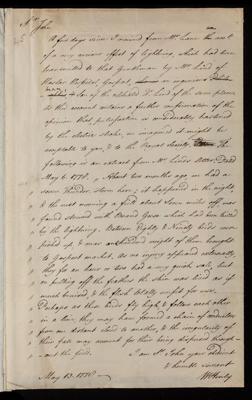 Sr. John
A few days since I received from Mr. Lind the account
of a very curious effect of lightning, which had been
transmitted to that Gentleman by Mr. Lind of
Gosport, an ingenious
& Son of the celebrated Dr. Lind of the same place.
As this account contains a further confirmation of the
opinion that putrefaction is accelerated
by the electric shake, I imagined it might be
acceptable to you, & to the Royal Society. The
following is an extract from Mr. Lind's letter Dated
May 6. 1780. "About two months ago we had a
severe thunder storm here; it happened in the night,
& the next morning a field about seven miles off was
found strewed with Brand Geese which had been killed
by the lightning. Between Eighty & Ninety birds were
picked up, & near a hundred weight of them brought
to Gosport market. As no injury appeared externally
they for an hour or two had a very quick sale, but
on pulling off the feathers the skin was found as if
much bruised & the flesh totally unfit for use.
Perhaps as these birds fly high & follow each other
in a line, they may have formed a chain of conductors
from one distant cloud to another, & the irregularity of
their fate may account for their being dispersed through-
-out the field.
I am Sr. John your obedient
& humble servant
May 13. 1780
W Henly